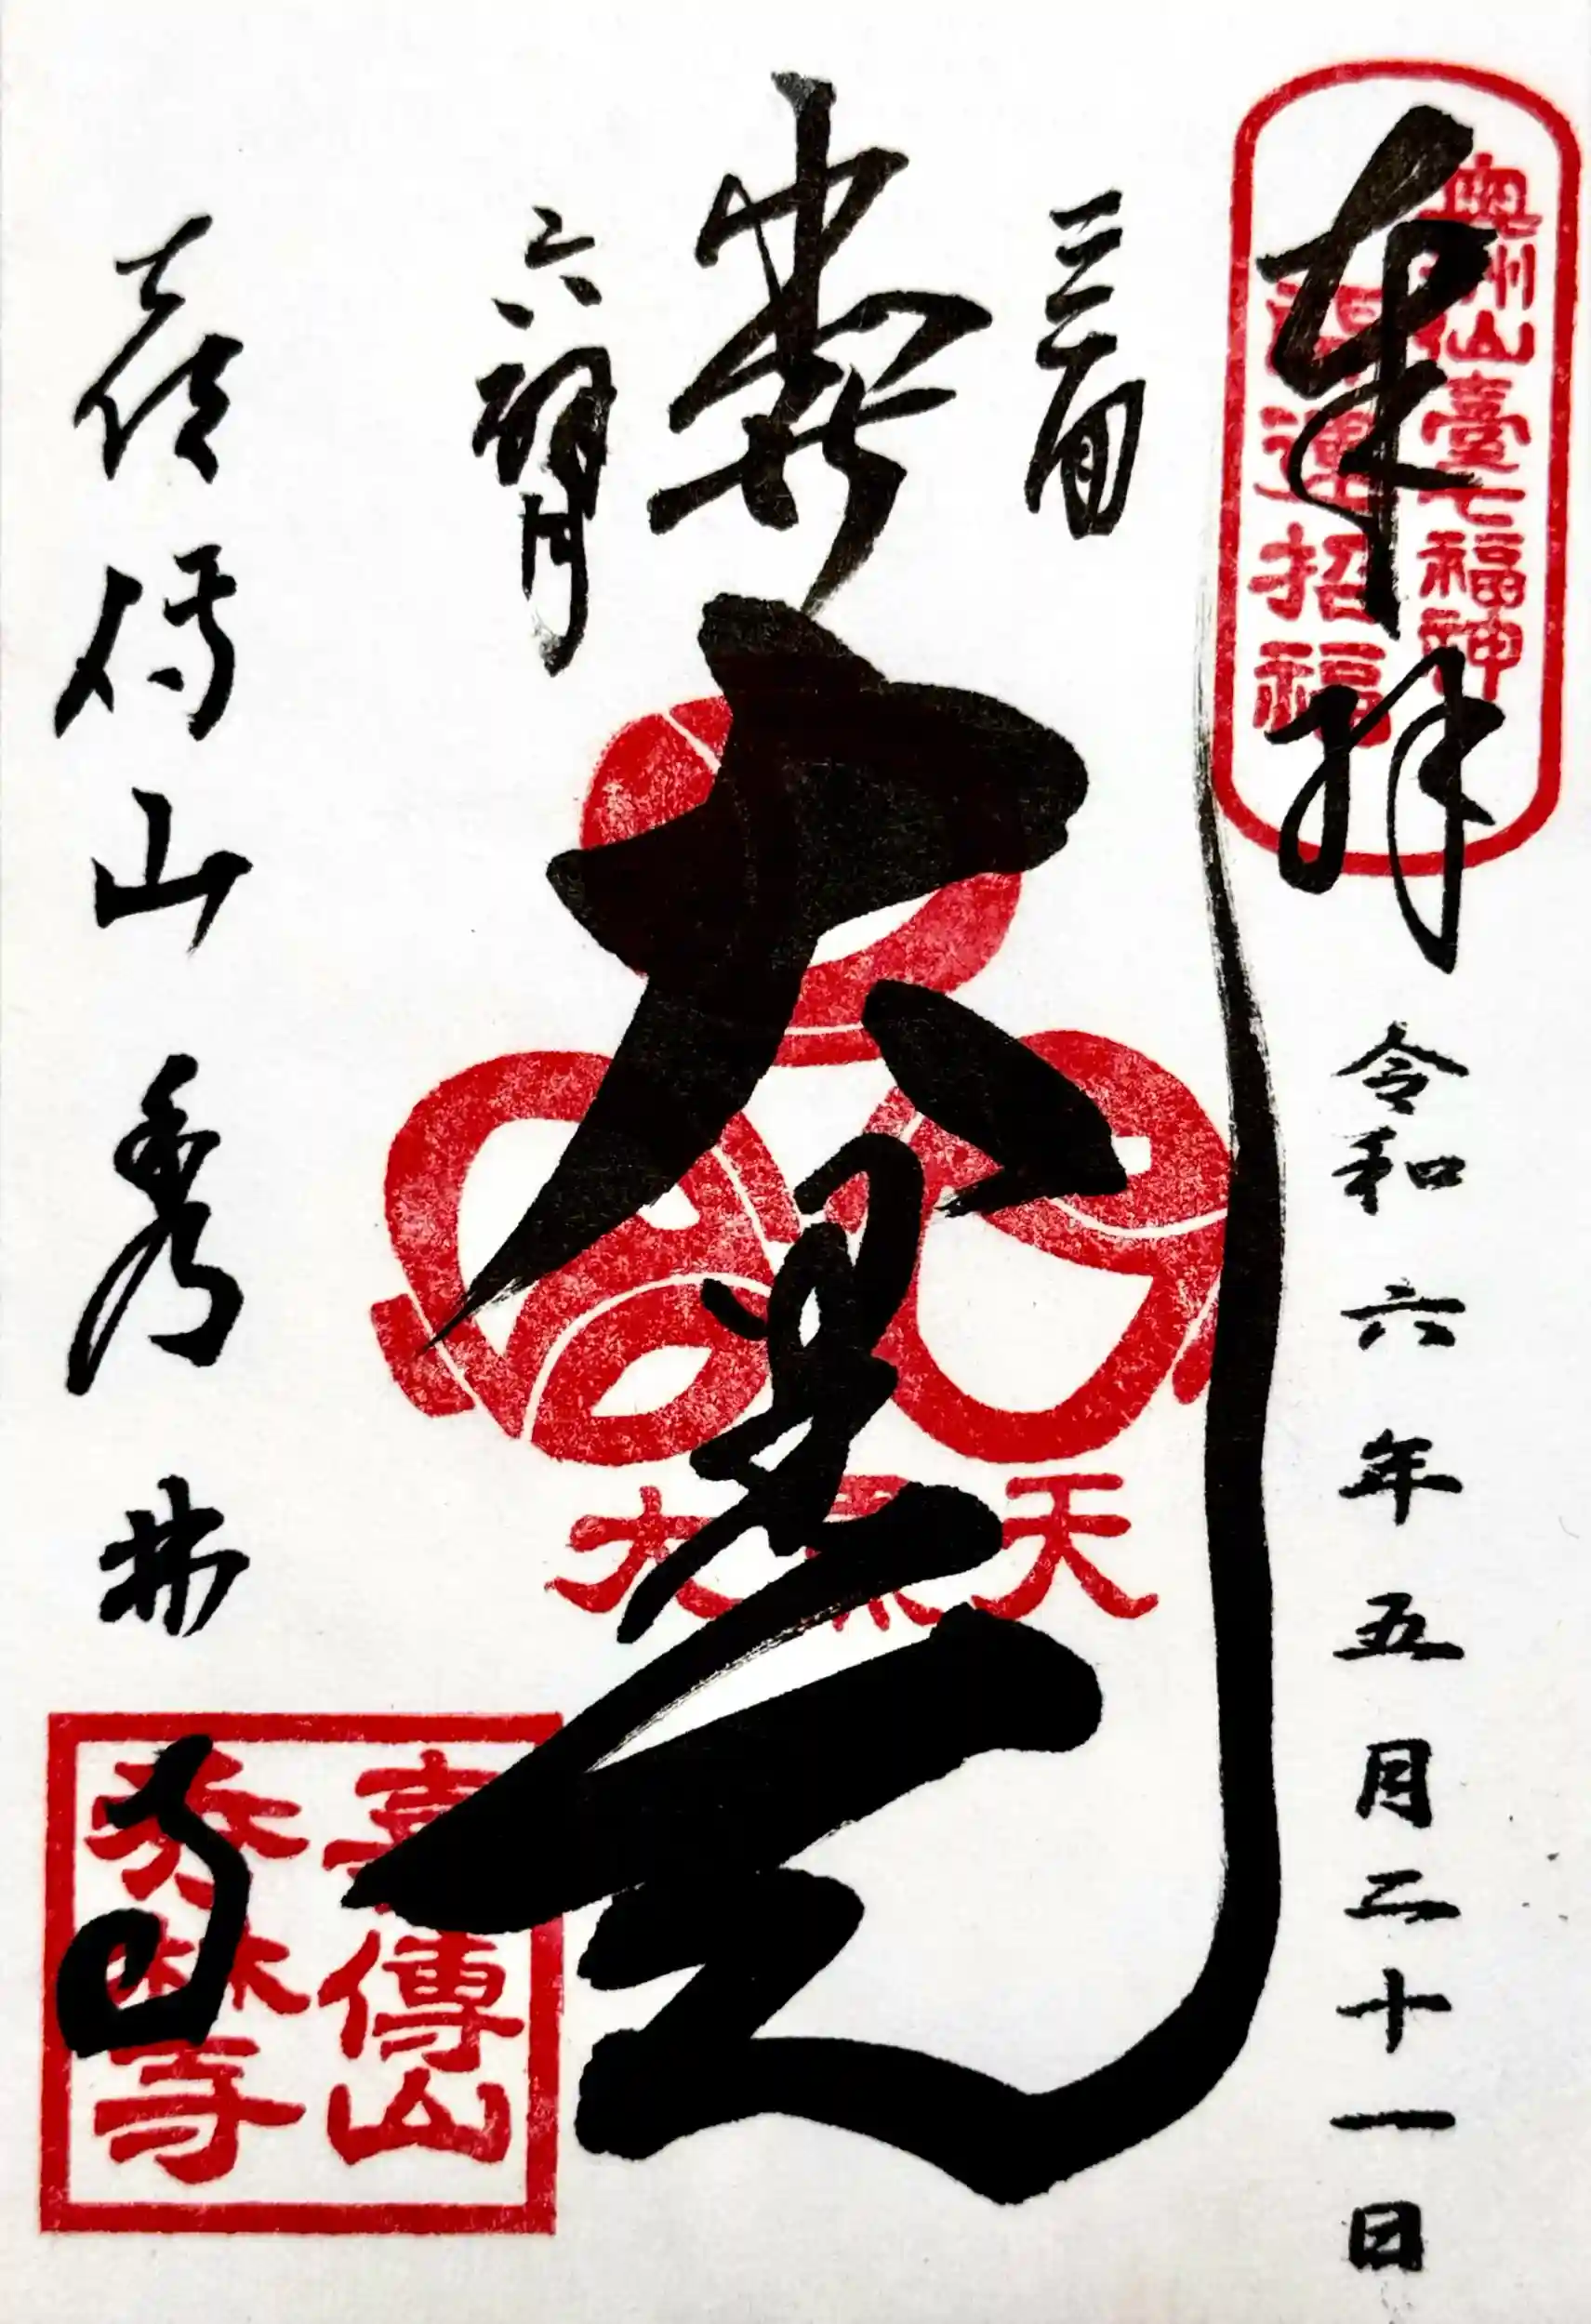 奉拝
奥州仙臺七福神
開運招福
令和六年五月二十一日
三面
大黒天
六臂
大黒天
喜傳山秀林寺
喜傳山
秀林寺